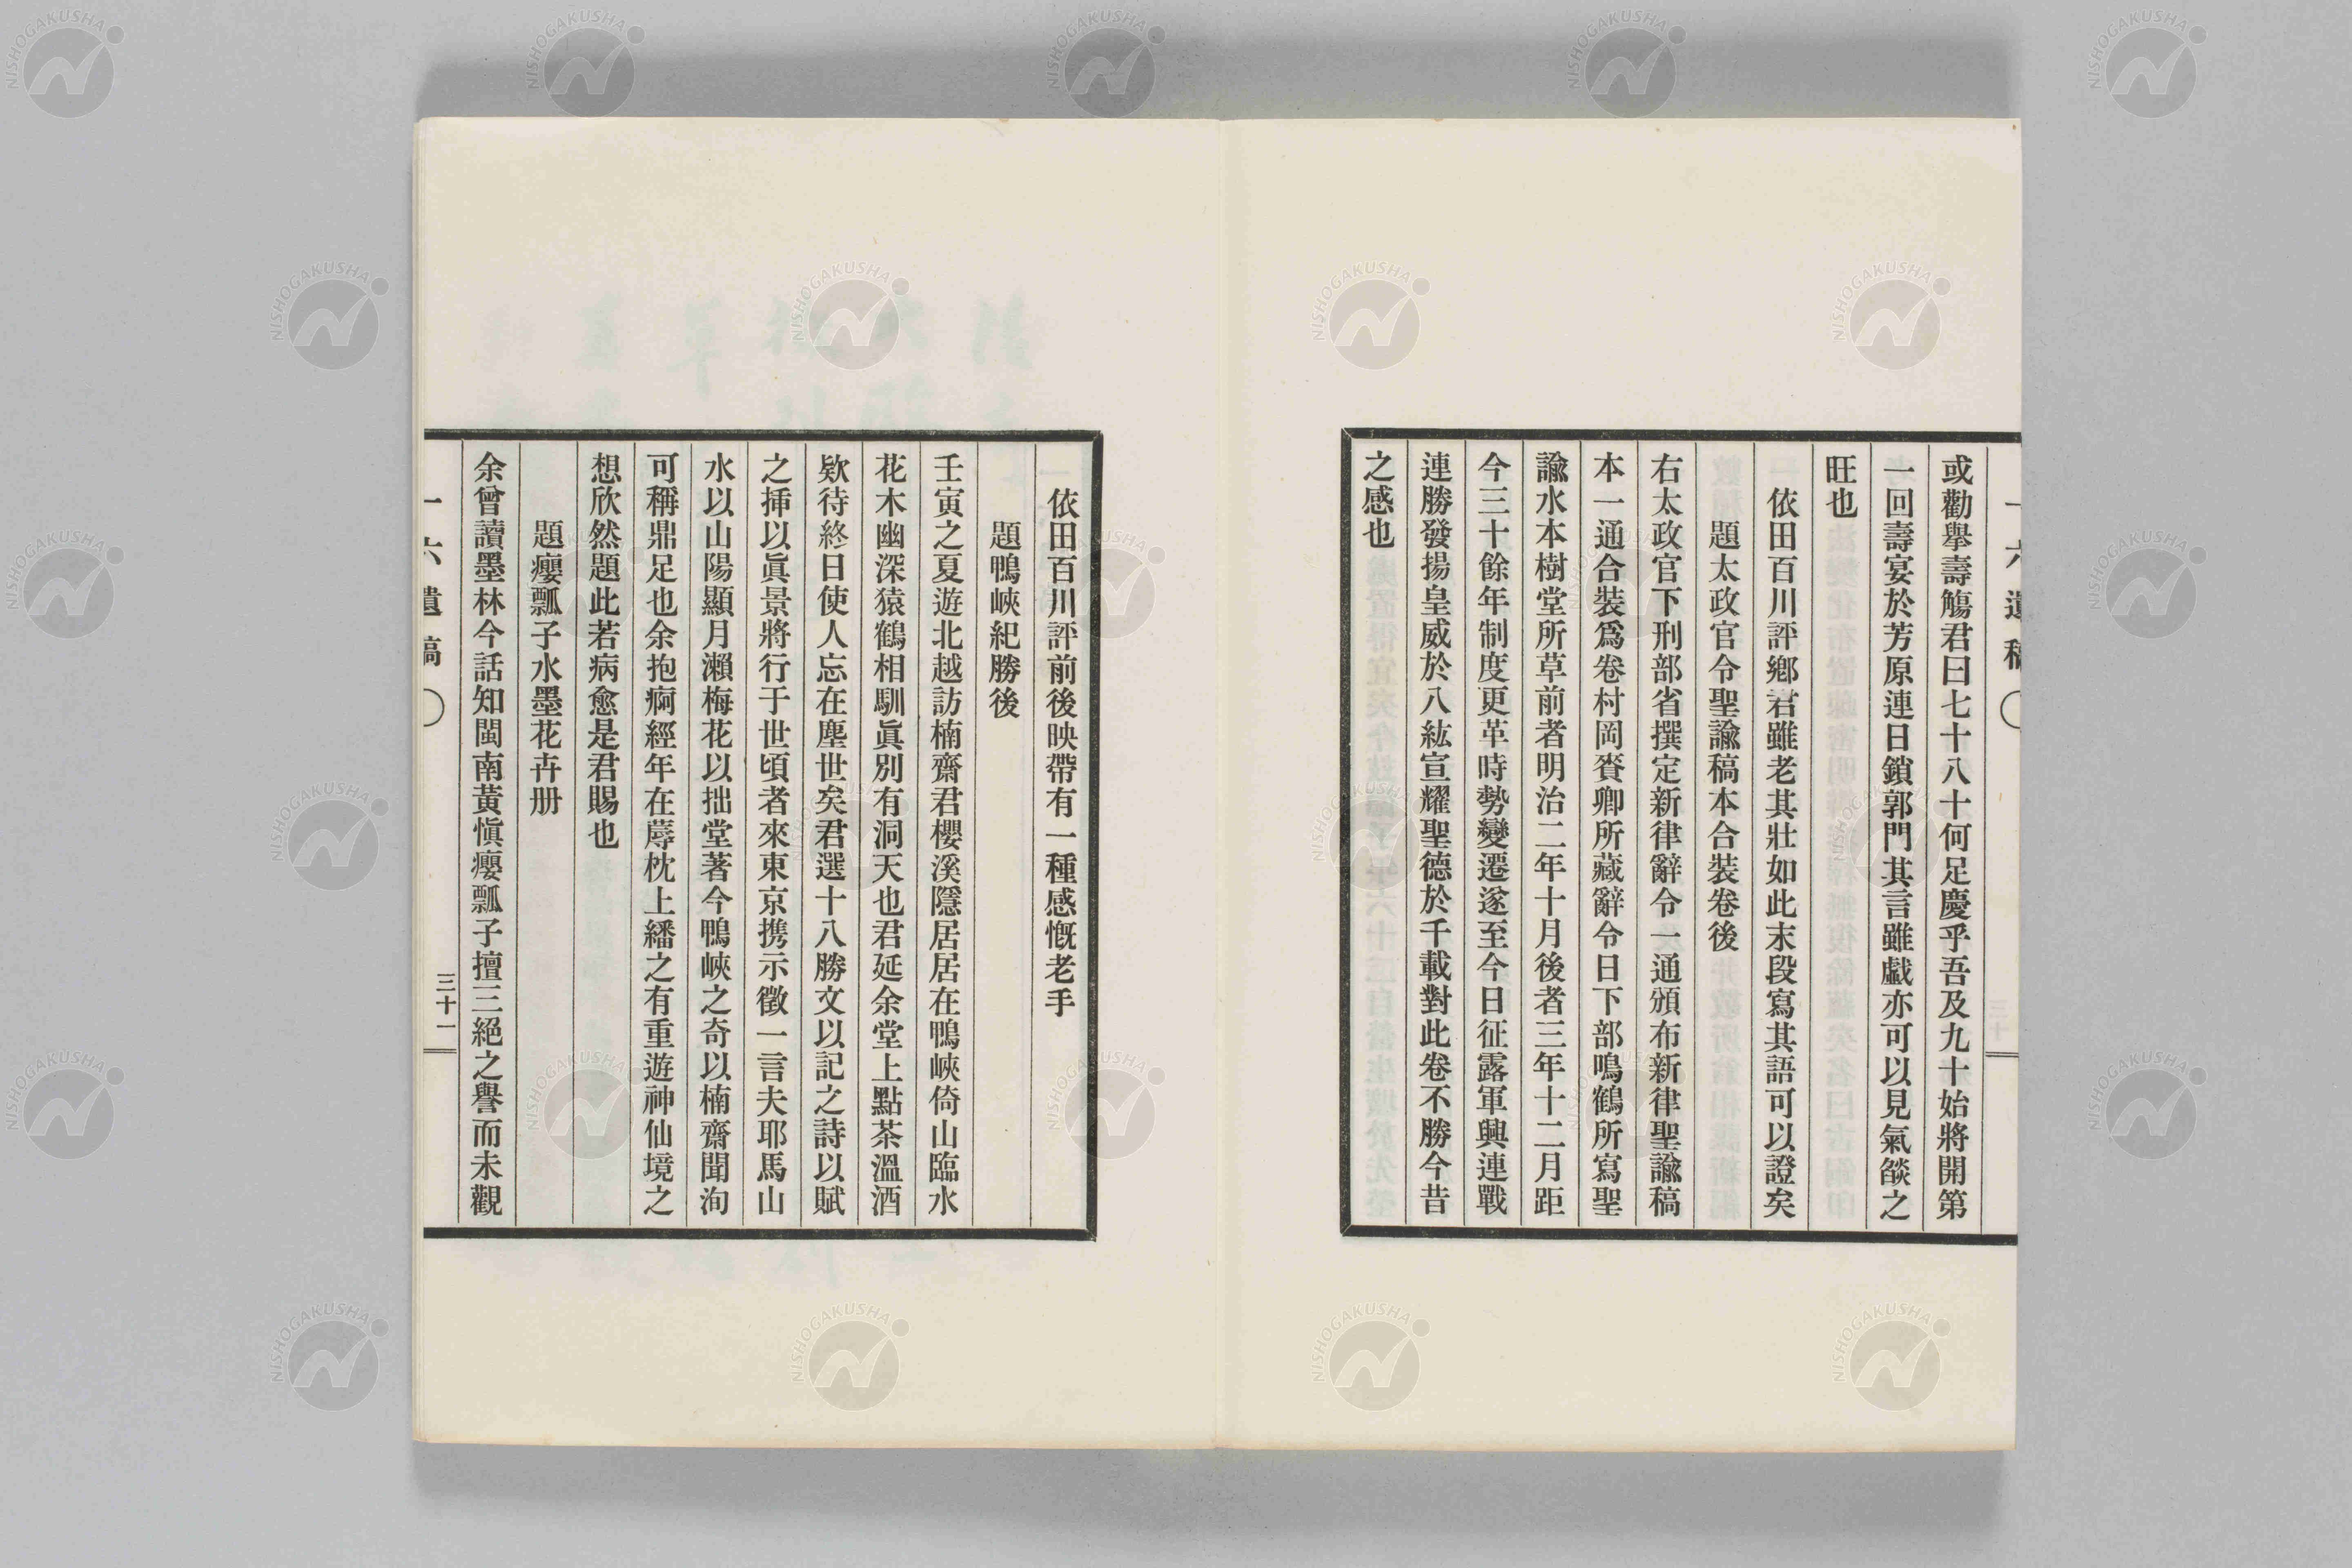 一六遺稿
或勸擧壽觴君曰七十八十何足慶乎吾及九十始將開第
一回壽宴於芳原連日鎖郭門其言雖戲亦可以見氣燄之
旺也
依田百川評鄕君雖老其壯如此末段寫其語可以證矣
題太政官令聖諭稿本合裝卷後
右太政官下刑部省撰定新律辭令一通頒布新律聖諭稿
本一通合裝爲卷村岡賚卿所藏辭令日下部鳴鶴所寫聖
諭水本樹堂所草前者明治二年十月後者三年十二月距
今三十餘年制度更革時勢變遷遂至今日征露軍興連戰
連勝發揚皇威於八紘宣耀聖德於千載對此卷不勝今昔
之感也
依田百川評前後映帶有一種感慨老手
題鴨峽紀勝後
壬寅之夏遊北越訪楠齋君櫻溪隱居居在鴨峽倚山臨水
花木幽深猿鶴相馴眞別有洞天也君延余堂上點茶溫酒
欵待終日使人忘在塵世矣君選十八勝文以記之詩以賦
之揷以眞景將行于世頃者來東京携示徵一言夫耶馬山
水以山陽顯月瀨梅花以拙堂著今鴨峽之奇以楠齋聞洵
可稱鼎足也余抱痾經年在蓐枕上繙之有重遊神仙境之
想欣然題此若病愈是君賜也
題癭瓢子水墨花卉册
余曾讀墨林今話知閩南黃愼癭瓢子擅三絕之譽而未觀
一六遺稿
三十一